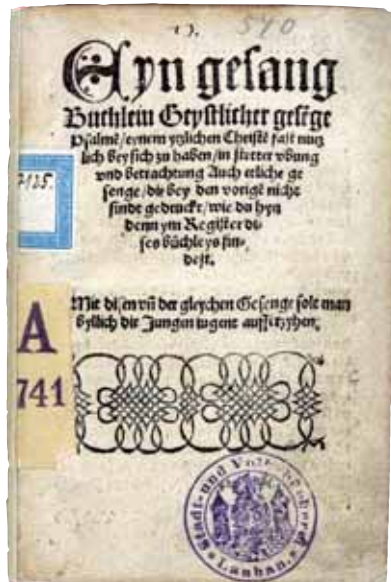 13.
540
Eyn gesang
Buchlein Geystlicher gesēge
Psalmē/eynem ytzlichen Christē fast nutz
lich bey sich zu haben/in stetter vbung
vnd betrachtung Auch etliche ge
senge/die bey den vorigē nicht
sindt gedruckt/wie du hyn
denn ym Register di-
ses büchleys fin-
dest.
7125.
Mit disen vn̄ der gleychen Gesenge solt man
byllich die Jungen iugent auffertzyhen.
A
741
Stadt- und Lauban